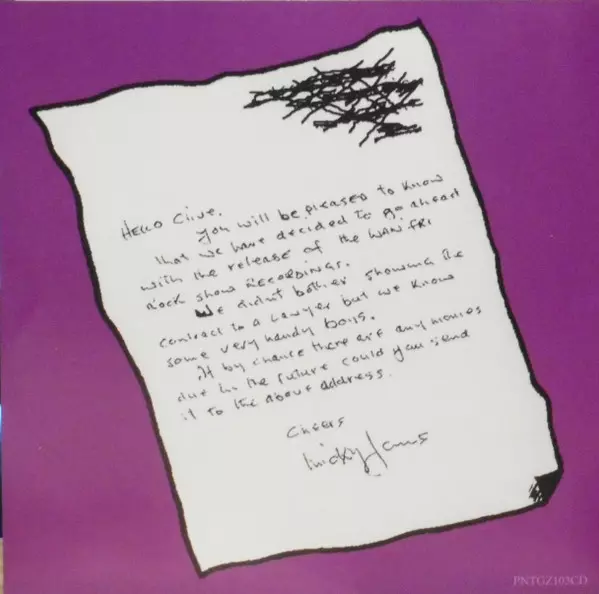 Hello Clive.
You will be pleased to know
that we have decided to go ahead
with the release of the
Rock show recordings.
We didn't bother showing the
contract to a lawyer but we know
some very handy boys.
If by chance there are any monies
due in the future could you send
it to the above address.
Cheers
Micky Jones
PNTGZ103CD